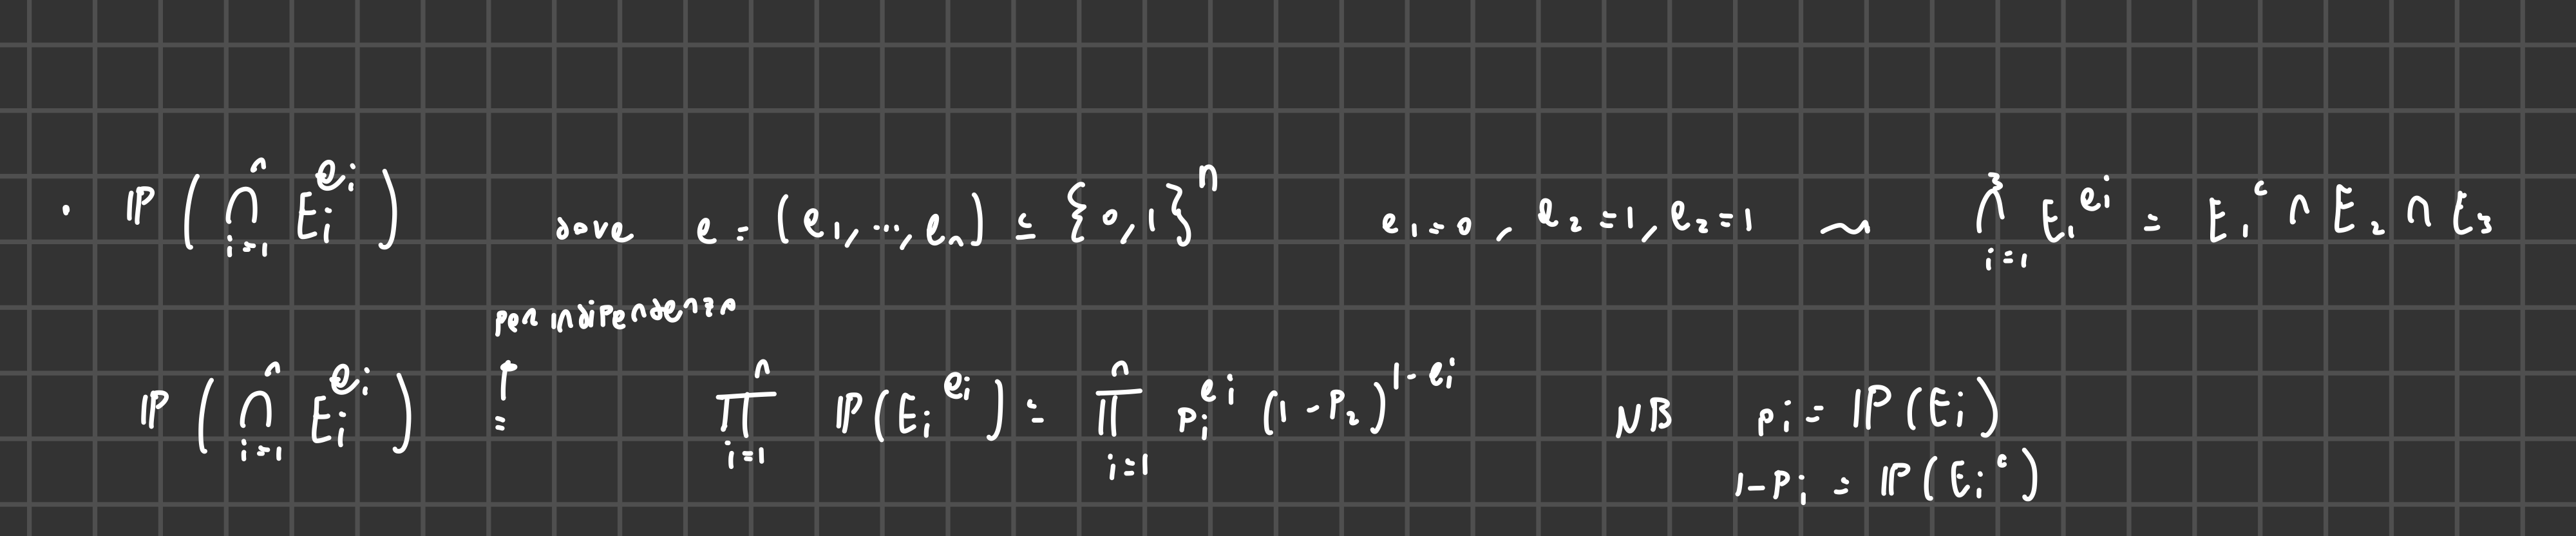 · ℙ(⋂_{i=1}^{n} E_i^{e_i}) dove e = (e_1, ..., e_n) ≤ {0,1}^n e_1=0, e_2=1, e_2=1 ⇝ ⋂_{i=1}^{3} E_i^{e_i} = E_1^c ∩ E_2 ∩ E_3
per indipendenza
ℙ(⋂_{i=1}^{n} E_i^{e_i}) = ∏_{i=1}^{n} ℙ(E_i^{e_i}) = ∏_{i=1}^{n} p_i^{e_i} (1-p_2)^{1-e_i} NB p_i = ℙ(E_i)
1-p_i = ℙ(E_i^c)